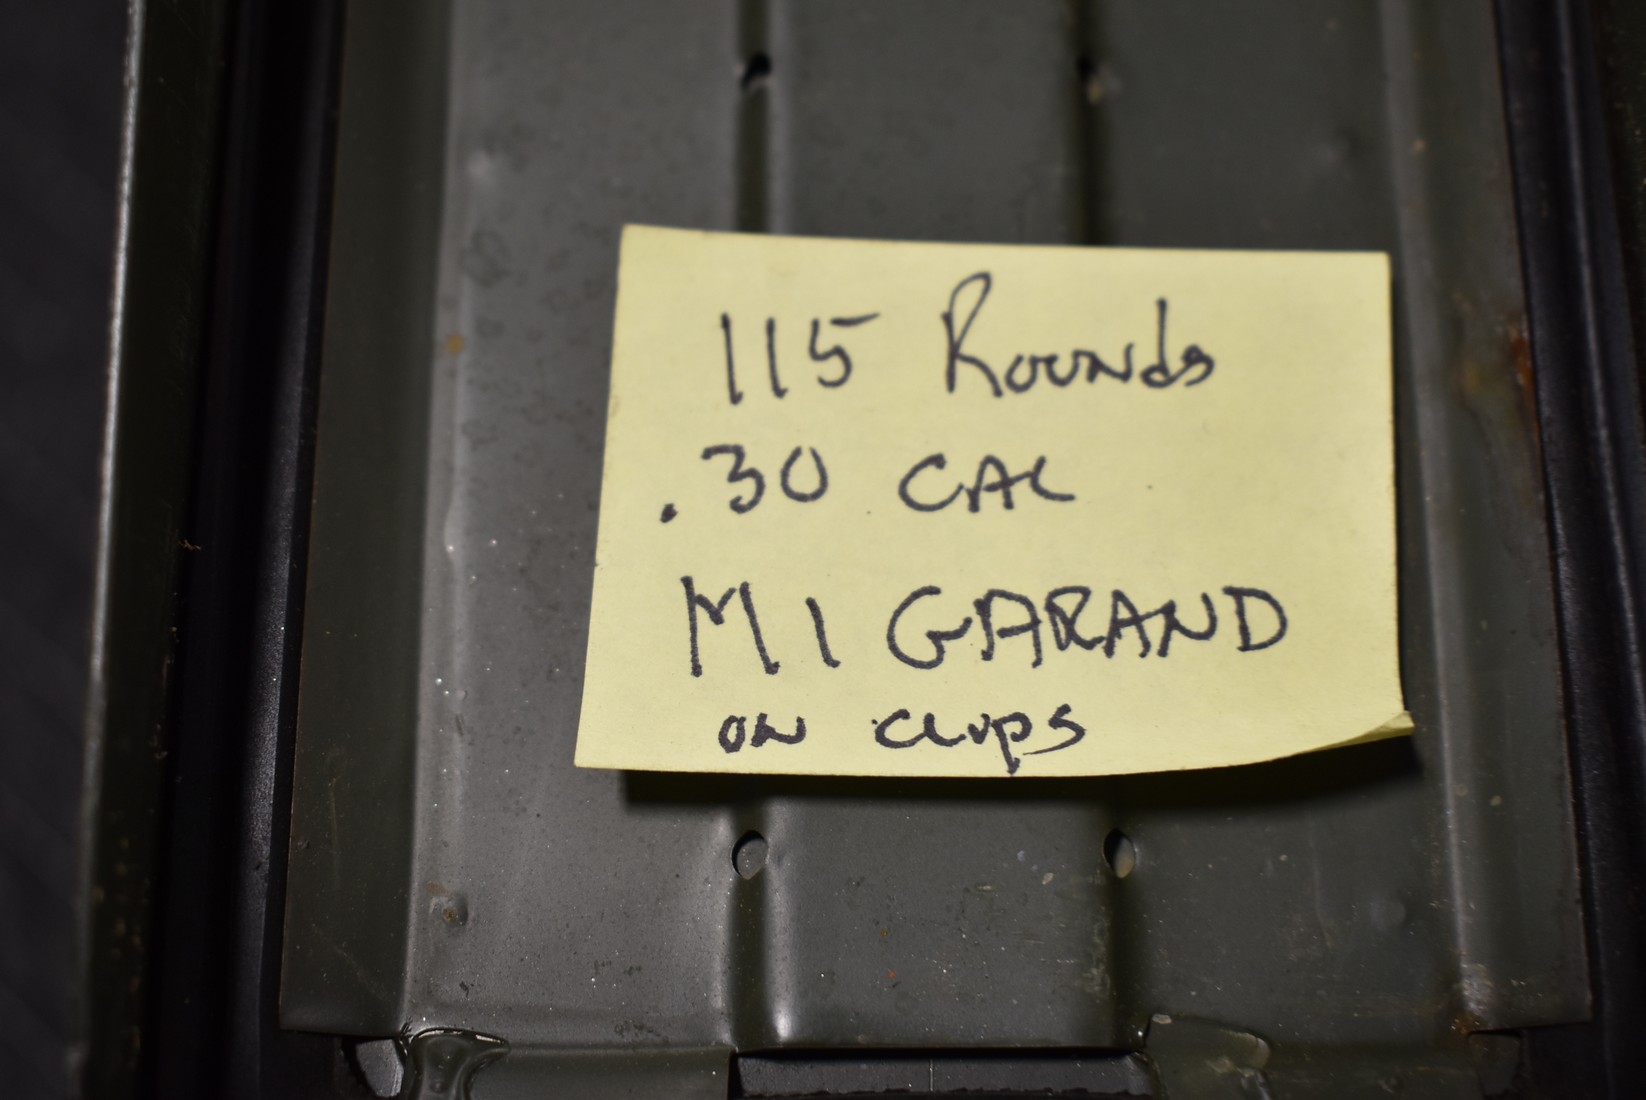 115 Rounds
.30 CAL
M1 GARAND
on clips